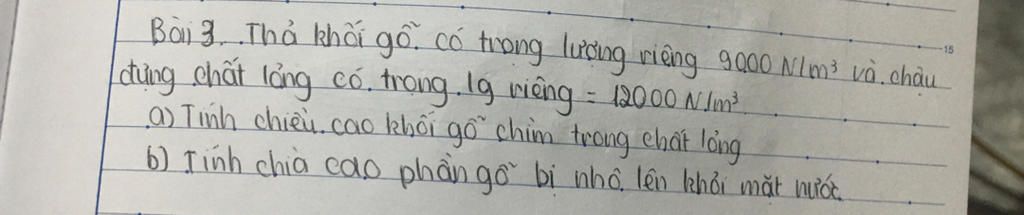 Bài 3. Thả khối gỗ có trọng lượng riêng 9000 N/m³ và chậu
đựng chất lỏng có trọng lg riêng = 12000 N/m³
a) Tính chiều cao khối gỗ chìm trong chất lỏng
b) Tính chià cao phần gỗ bị nhô lên khỏi mặt nước
15